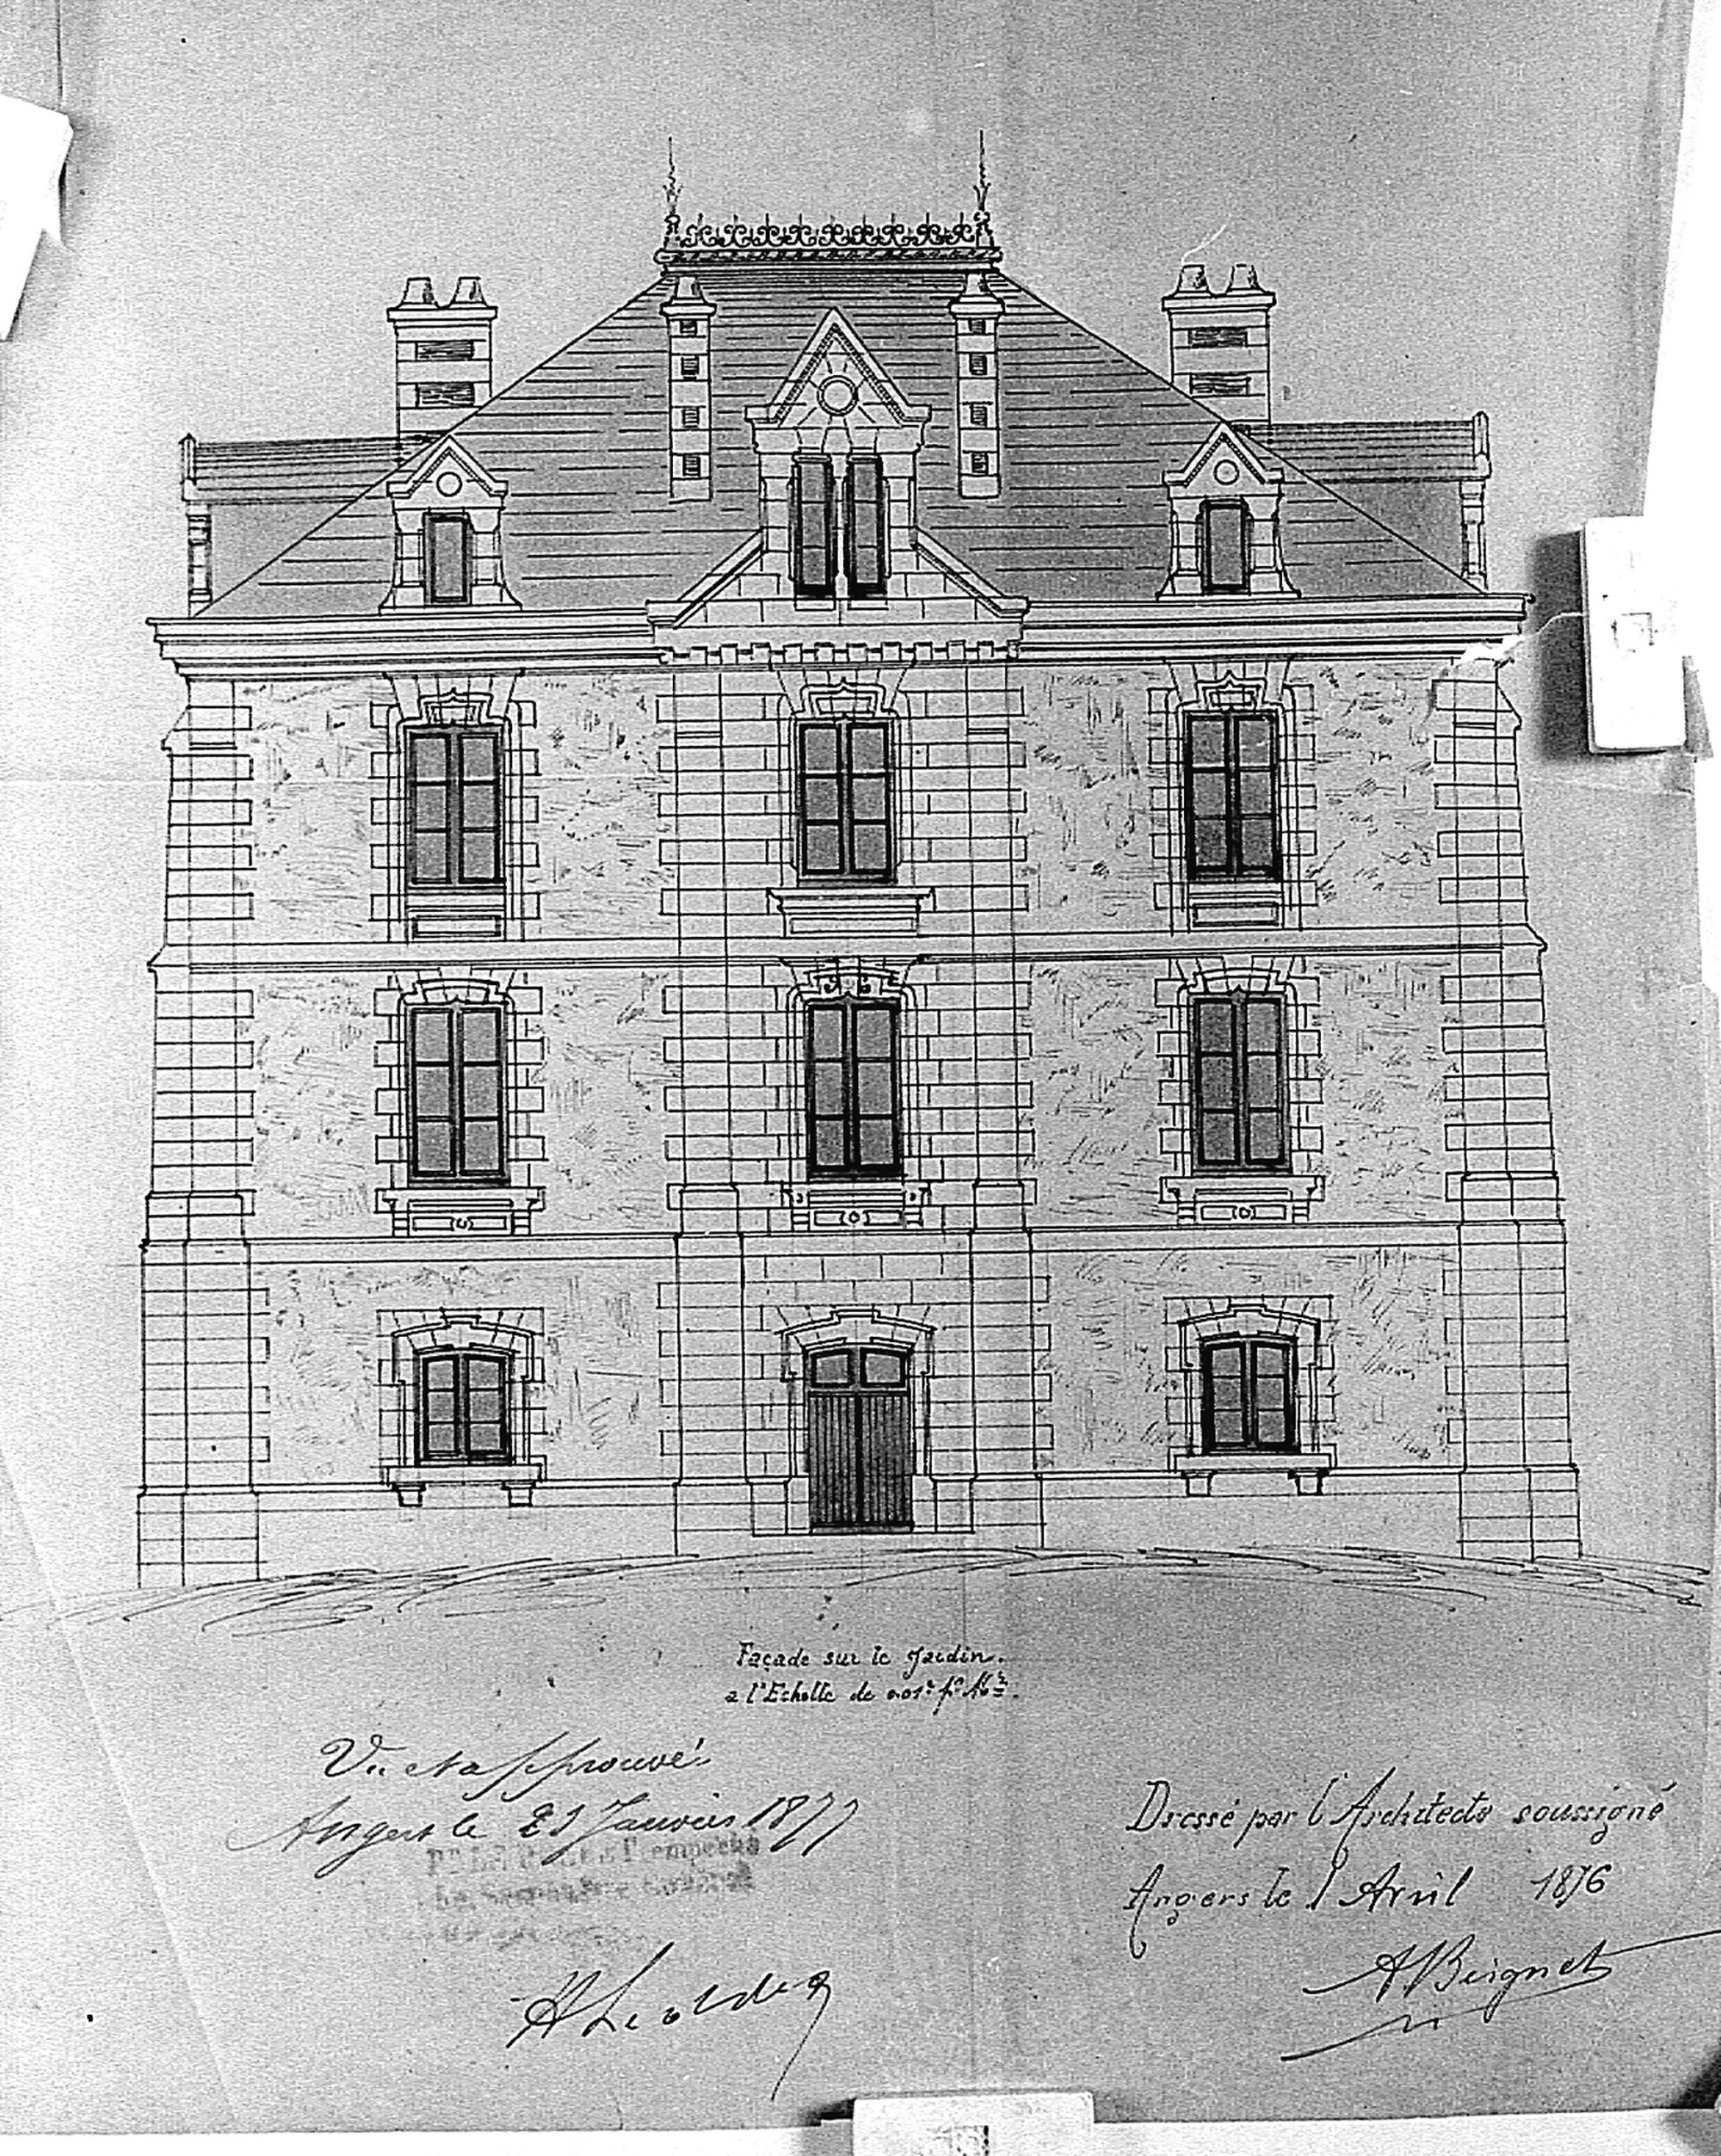 Façade sur le Jardin.
a l'Echelle de 0.01c pr M
Vu et approuvé
Angers le 21 Janvier 1877
Dressé par l'Architecte soussigné
Angers le 1 Avril 1876
ABeignet